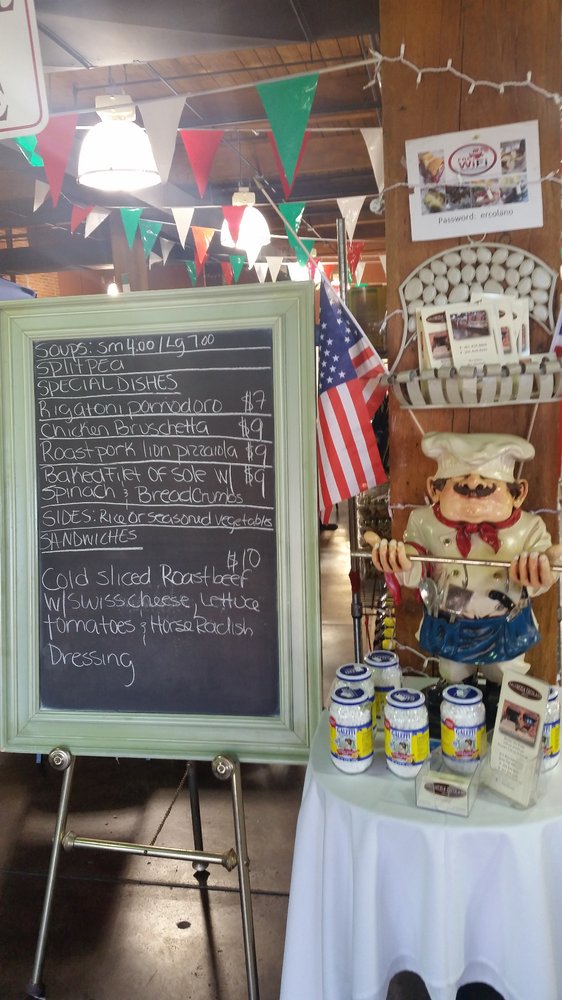 WiFi
Password: ercolano
Soups: Sm 4.00 / Lg 7.00
Split Pea
Special Dishes
Rigatoni pomodoro $7
Chicken Bruschetta $9
Roast pork lion pizzaiola $9
Baked filet of sole w/ $9
Spinach & Breadcrumbs
Sides: Rice or seasoned vegetables
Sandwiches
$10
Cold sliced Roastbeef
w/ Swiss cheese, Lettuce
tomatoes & HorseRadish
Dressing
GALEFFI